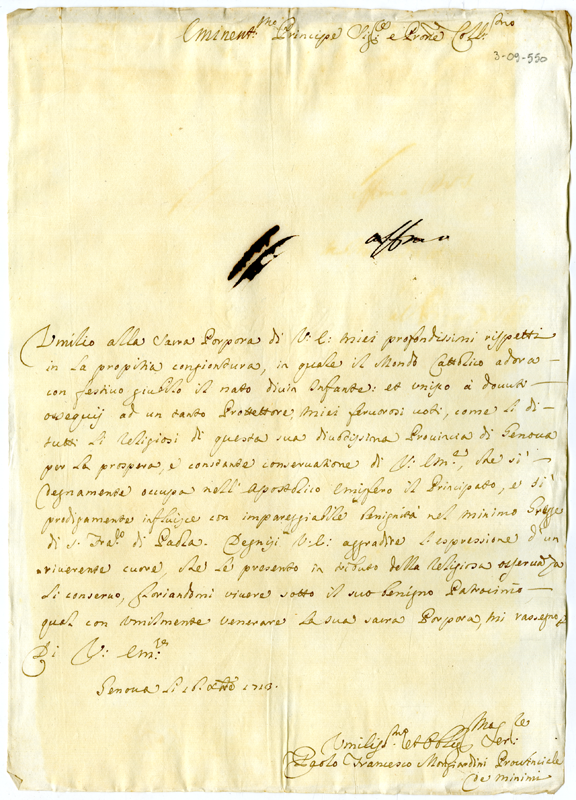 Eminent.mo Principe Sig.e e Prone Coll.mo
3-09-550
Umilio alla Sacra Porpora di V: E: miei profondissimi rispetti
in la propitia congiontura, in quale il Mondo Cattolico adora
con festivo giubilo il nato divin Infante: et unisco a dovuti
ossequij ad un tanto Protettore, miei fervorosi voti, come li di
tutti li religiosi di questa sua divotissima Provincia di Genova
per la prospera, e constante conservatione di V: Em.a, che si
degnamente occupa nell' Apostolico emisfero il Principato, e si
prodigamente influisce con impareggiabile benignità nel minimo Gregge
di S. Fra.co di Paola. Degnisi V: E: aggradire l'espressione d'un
riverente cuore, che Le presento in tributo della religiosa osservanza
Li conservo, gloriandomi vivere sotto il suo benigno Patrocinio
qual con umilmente venerare la sua sacra Porpora, mi rassegno
Di V: Em.za
Genova li 16. Xbre 1713.
Umiliss.mo et Obblig.mo Ser.
Paolo Francesco Provinciale
de Minimi